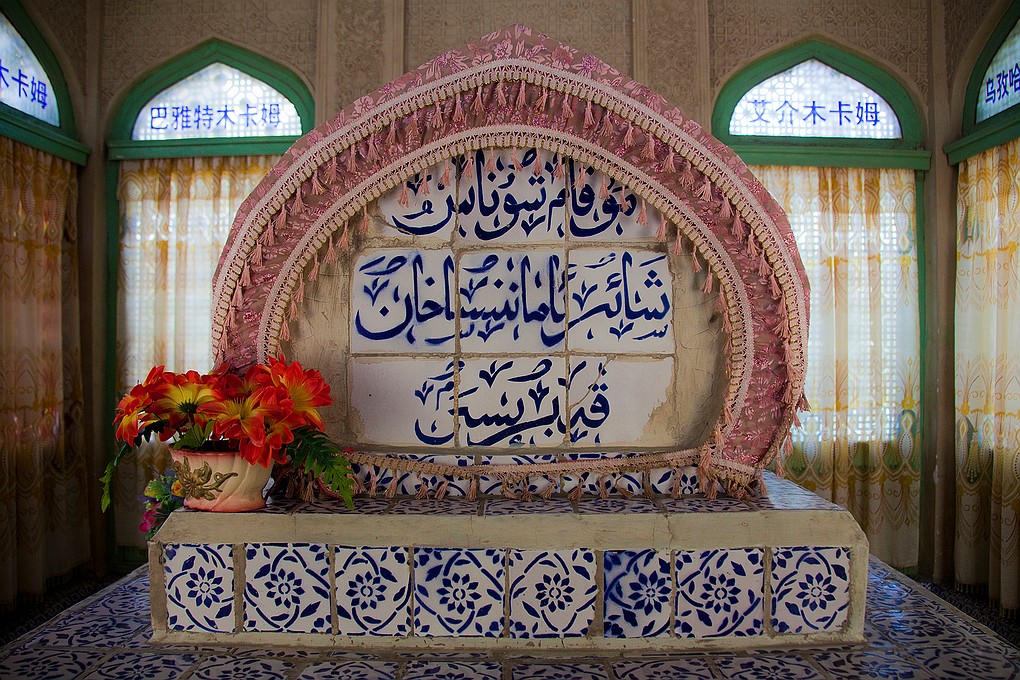 木卡姆
巴雅特木卡姆
艾介木卡姆
乌孜哈
مۇقام شۇناس
شائىر ئاماننىساخان
قەبرىسى